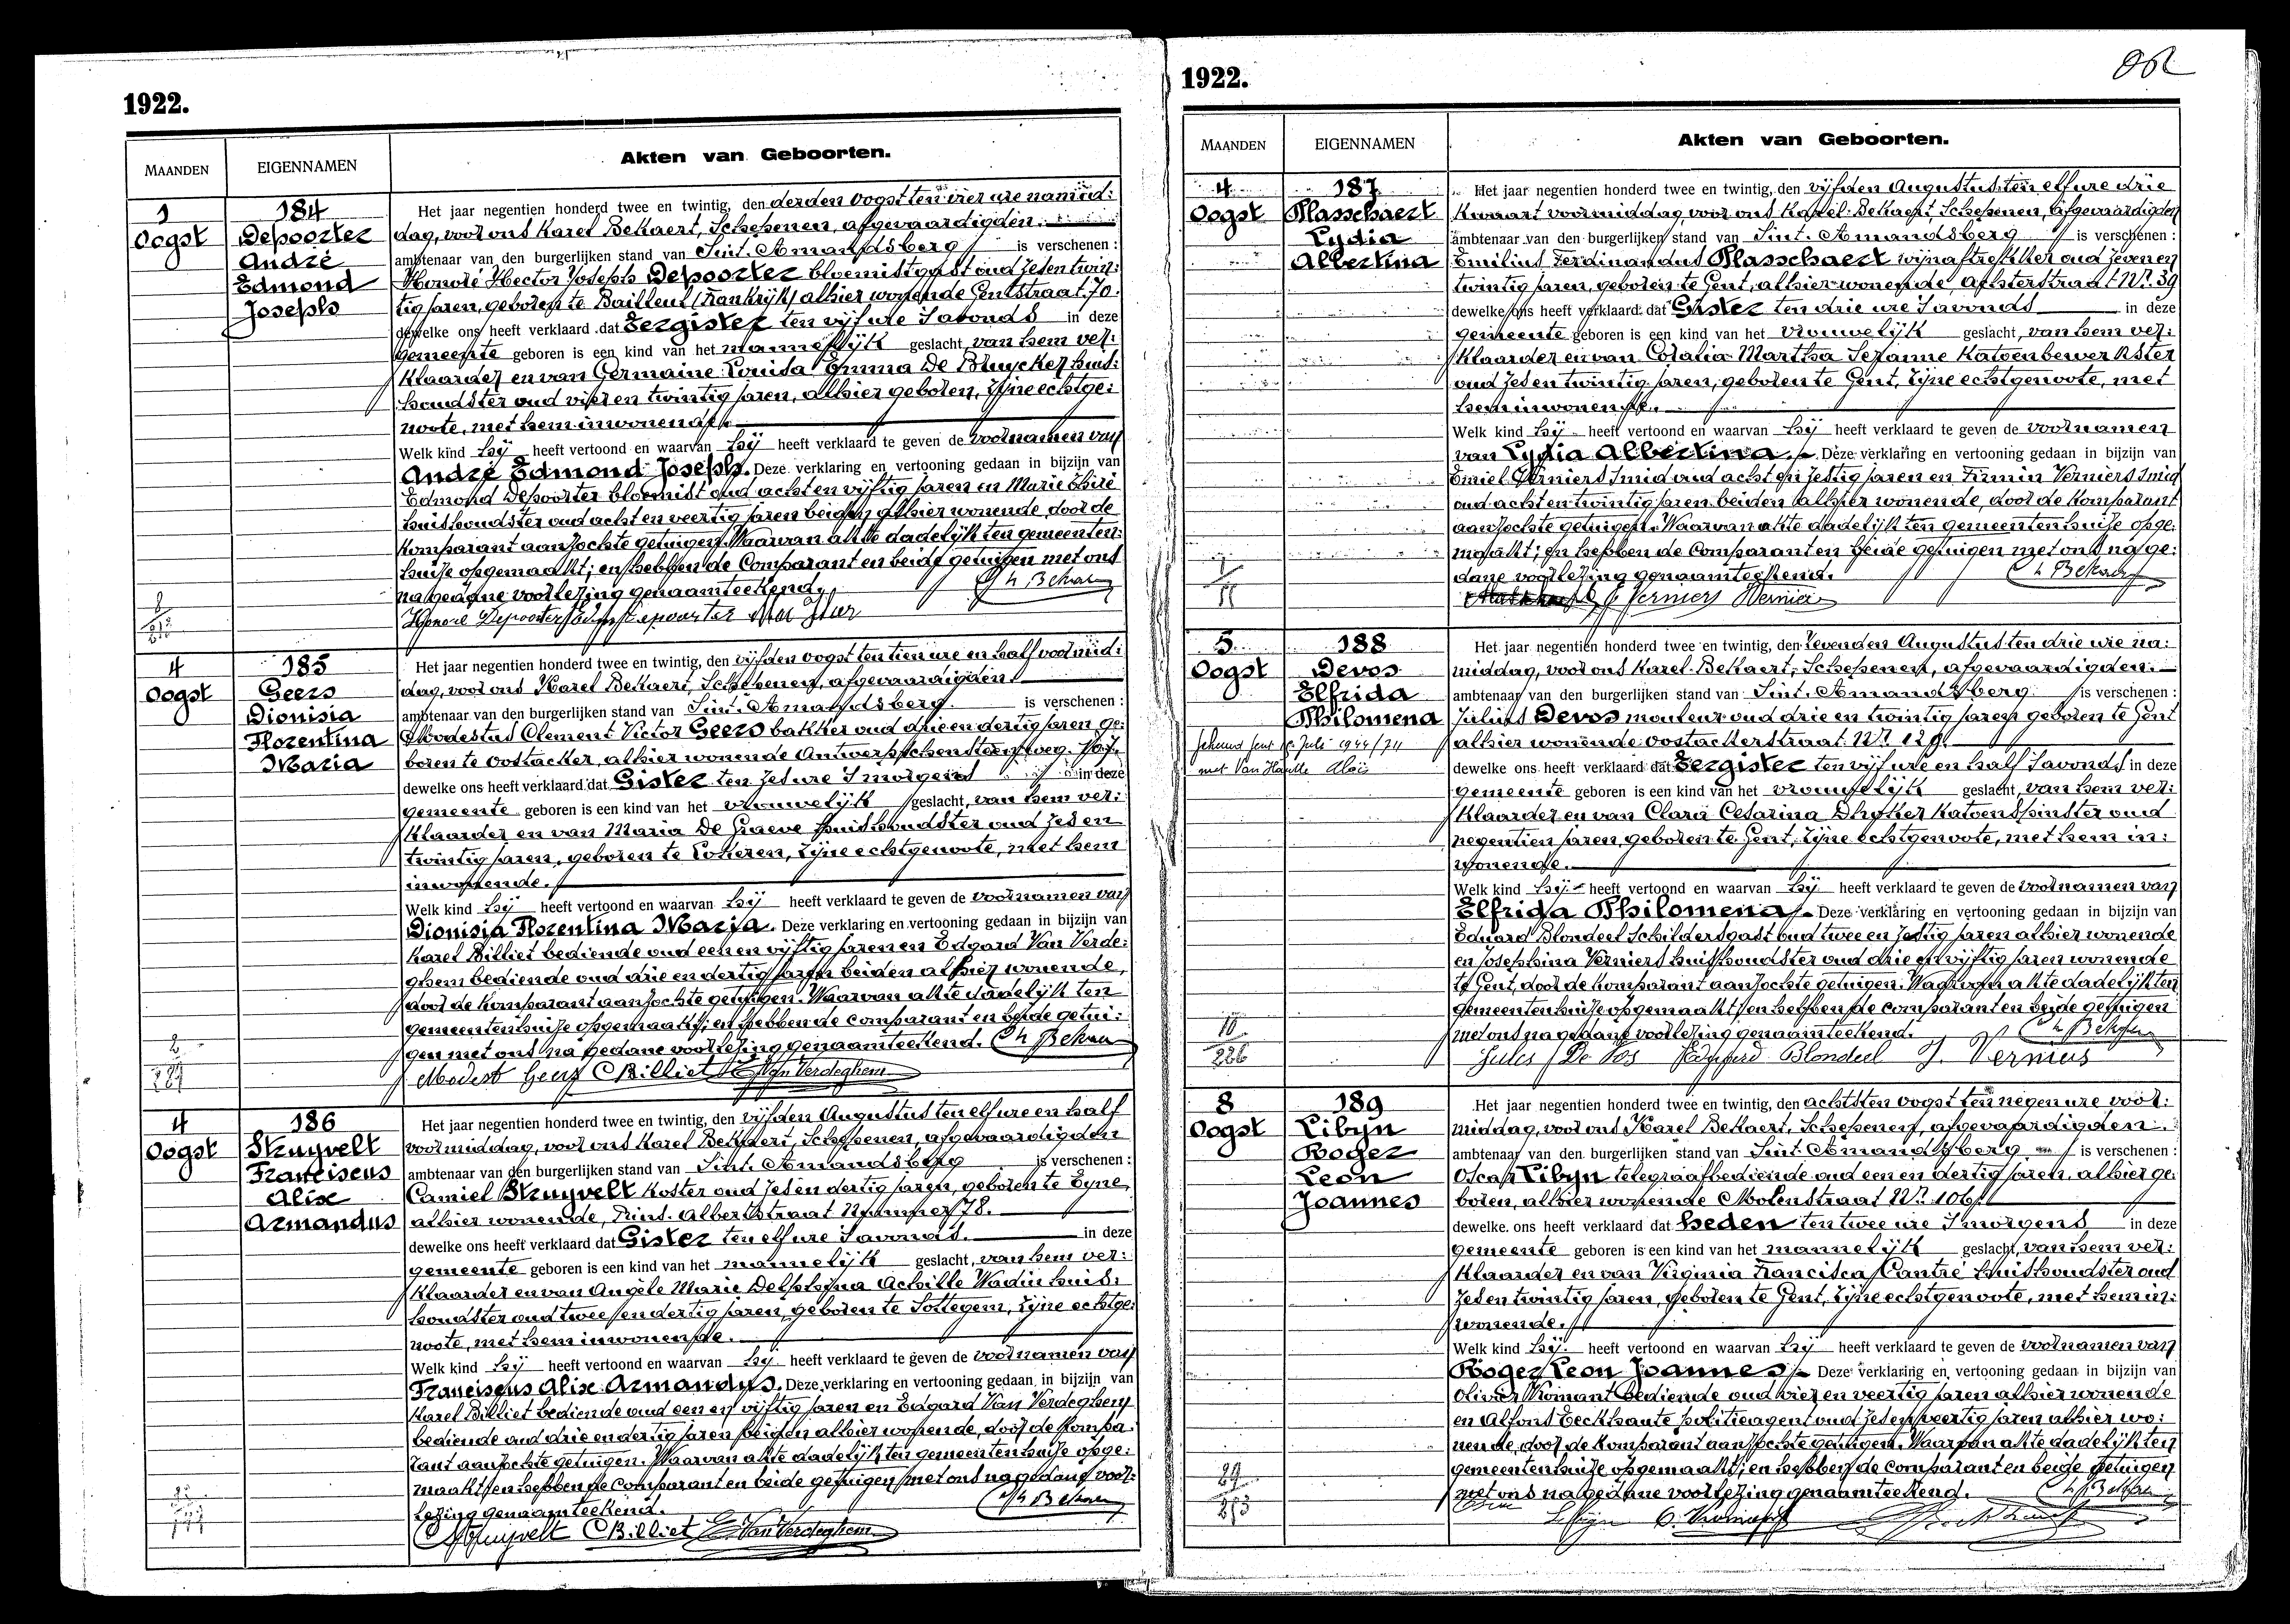 1922.
MAANDEN
EIGENNAMEN
Akten van Geboorten.
1
Oogst
184
Depoorter
André
Edmond
Joseph
Het jaar negentien honderd twee en twintig, den derden oogst ten vier ure namid:
dag, voor ons Karel Bekaert, Schepenen, afgevaardigden
ambtenaar van den burgerlijken stand van Sint. Amandsberg is verschenen:
Honoré Hector Joseph Depoorter bloemistgast oud zes en twin:
tig jaren, geboren te Bailleul (Frankrijk) alhier wonende Gentstraat 70.
dewelke ons heeft verklaard dat Eergister ten vijf ure 's avonds in deze
gemeente geboren is een kind van het mannelijk geslacht, van hem ver:
klaarder en van Germaine Louisa Emma De Bruycker huis:
houdster oud vier en twintig jaren, alhier geboren, zijne echtge:
noote, met hem inwonende.
Welk kind hij heeft vertoond en waarvan hij heeft verklaard te geven de voornamen van
André Edmond Joseph. Deze verklaring en vertooning gedaan in bijzijn van
Edmond Depoorter bloemist oud acht en vijftig jaren en Marie
huishoudster oud acht en veertig jaren beiden alhier wonende, door de
komparant aanzochte getuigen. Waarvan akte dadelijk ten gemeenten:
huize opgemaakt; en hebben de Comparant en beide getuigen met ons
na gedane voorlezing genaamteekend.
Honoré Depoorter Edm Depoorter
4
Oogst
185
Geers
Dionisia
Florentina
Maria
Het jaar negentien honderd twee en twintig, den vijfden oogst ten tien ure en half voormid:
dag, voor ons Karel Bekaert, Schepenen, afgevaardigden
ambtenaar van den burgerlijken stand van Sint. Amandsberg is verschenen:
Modestus Clement Victor Geers bakker oud drie en dertig jaren ge:
boren te Oostacker, alhier wonende Antwerpschensteenweg.
dewelke ons heeft verklaard dat Gister ten zes ure 's morgens in deze
gemeente geboren is een kind van het vrouwelijk geslacht, van hem ver:
klaarder en van Maria De Graeve huishoudster oud zes en
twintig jaren, geboren te Lokeren, zijne echtgenoote, met hem
inwonende.
Welk kind hij heeft vertoond en waarvan hij heeft verklaard te geven de voornamen van
Dionisia Florentina Maria. Deze verklaring en vertooning gedaan in bijzijn van
Karel Billiet bediende oud een en vijftig jaren en Edgard Van Verde:
ghem bediende oud drie en dertig jaren beiden alhier wonende,
door de komparant aanzochte getuigen. Waarvan akte dadelijk ten
gemeentenhuize opgemaakt; en hebben de comparant en beide getui:
gen met ons na gedane voorlezing genaamteekend. Ch Bekaert
Modest Geers CBilliet E Van Verdeghem
4
Oogst
186
Struyvelt
Franciscus
Alix
Armandus
Het jaar negentien honderd twee en twintig, den vijfden Augustus ten elf ure en half
voormiddag, voor ons Karel Bekaert, Schepenen, afgevaardigden
ambtenaar van den burgerlijken stand van Sint. Amandsberg is verschenen:
Camiel Struyvelt koster oud zes en dertig jaren, geboren te Eyne,
alhier wonende, Prins. Albertstraat Nummer 78.
dewelke ons heeft verklaard dat Gister ten elf ure 's avonds. in deze
gemeente geboren is een kind van het mannelijk geslacht, van hem ver:
klaarder en van Angèle Marie Delphina Achille Wadin huis:
houdster oud twee en dertig jaren, geboren te Sottegem, zijne echtge:
noote, met hem inwonende.
Welk kind hij heeft vertoond en waarvan hij heeft verklaard te geven de voornamen van
Franciscus Alix Armandus. Deze verklaring en vertooning gedaan in bijzijn van
Karel Billiet bediende oud een en vijftig jaren en Edgard Van Verdeghem
bediende oud drie en dertig jaren beiden alhier wonende, door de kompa:
rant aanzochte getuigen. Waarvan akte dadelijk ten gemeentenhuize opge:
maakt; en hebben de comparant en beide getuigen met ons na gedane voor:
lezing genaamteekend. Ch Bekaert
CStruyvelt CBilliet E Van Verdeghem
1922.
MAANDEN
EIGENNAMEN
Akten van Geboorten.
4
Oogst
187
Plasschaert
Lydia
Albertina
Het jaar negentien honderd twee en twintig, den vijfden Augustus ten elf ure drie
kwaart voormiddag voor ons Karel Bekaert, Schepenen, afgevaardigden
ambtenaar van den burgerlijken stand van Sint. Amandsberg is verschenen:
Emilius Ferdinandus Plasschaert wijnaftrekker oud zeven en
twintig jaren, geboren te Gent, alhier wonende achterstraat Nr. 39
dewelke ons heeft verklaard dat Gister ten drie ure 's avonds in deze
gemeente geboren is een kind van het vrouwelijk geslacht, van hem ver:
klaarder en van Coralia Martha Sezanne Katoenbewerkster
oud zes en twintig jaren, geboren te Gent, zijne echtgenoote, met
hem inwonende.
Welk kind hij heeft vertoond en waarvan hij heeft verklaard te geven de voornamen
van Lydia Albertina. Deze verklaring en vertooning gedaan in bijzijn van
Emiel Verniers Smid oud acht en zestig jaren en Firmin Verniers Smid
oud acht en twintig jaren beiden alhier wonende, door de komparant
aanzochte getuigen. Waarvan akte dadelijk ten gemeentenhuize opge:
maakt; en hebben de Comparant en beide getuigen met ons na ge:
dane voorlezing genaamteekend. Ch Bekaert
Verniers Vernier
5
Oogst
188
Devos
Elfrida
Philomena
Gehuwd Gent Juli 1944/
met Van Haute Aloïs
Het jaar negentien honderd twee en twintig, den zevenden Augustus ten drie ure na:
middag, voor ons Karel Bekaert, Schepenen, afgevaardigden
ambtenaar van den burgerlijken stand van Sint. Amandsberg is verschenen:
Julius Devos monteur oud drie en twintig jaren geboren te Gent
alhier wonende oostackerstraat Nr. 129.
dewelke ons heeft verklaard dat Eergister ten vijf ure en half 's avonds in deze
gemeente geboren is een kind van het vrouwelijk geslacht, van hem ver:
klaarder en van Clara Cesarina Dhoker Katoenspinster oud
negentien jaren, geboren te Gent, zijne echtgenoote, met hem in:
wonende.
Welk kind hij heeft vertoond en waarvan hij heeft verklaard te geven de voornamen van
Elfrida Philomena. Deze verklaring en vertooning gedaan in bijzijn van
Eduard Blondeel Schildersgast oud twee en zestig jaren alhier wonende
en Josephina Verniers huishoudster oud drie en vijftig jaren wonende
te Gent, door de komparant aanzochte getuigen. Waarvan akte dadelijk ten
gemeentenhuize opgemaakt; en hebben de comparant en beide getuigen
met ons na gedane voorlezing genaamteekend. Ch Bekaert
Jules De Vos Eduard Blondeel J. Verniers
8
Oogst
189
Libyn
Roger
Leon
Joannes
Het jaar negentien honderd twee en twintig, den achtsten oogst ten negen ure voor:
middag, voor ons Karel Bekaert, Schepenen, afgevaardigden
ambtenaar van den burgerlijken stand van Sint Amandsberg is verschenen:
Oscar Libyn telegraafbediende oud een en dertig jaren, alhier ge:
boren, alhier wonende Molenstraat Nr. 106.
dewelke ons heeft verklaard dat heden ten twee ure 's morgens in deze
gemeente geboren is een kind van het mannelijk geslacht, van hem ver:
klaarder en van Virginia Francisca Cantré huishoudster oud
zes en twintig jaren, geboren te Gent, zijne echtgenoote, met hem in:
wonende.
Welk kind hij heeft vertoond en waarvan hij heeft verklaard te geven de voornamen van
Roger Leon Joannes. Deze verklaring en vertooning gedaan in bijzijn van
Olivier bediende oud vier en veertig jaren alhier wonende
en Alfons Eeckhaute politieagent oud zes en veertig jaren alhier wo:
nende, door de komparant aanzochte getuigen. Waarvan akte dadelijk ten
gemeentenhuize opgemaakt; en hebben de comparant en beide getuigen
met ons na gedane voorlezing genaamteekend. Ch Bekaert